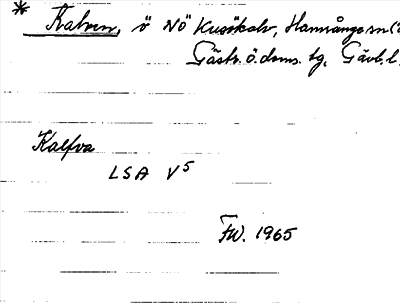 * Kalven, ö NÖ Kusökalv, Hamrånge sn (ö
Gästr. ö. doms. tg, Gävl. l.
Kalfva
LSA V5
FW. 1965